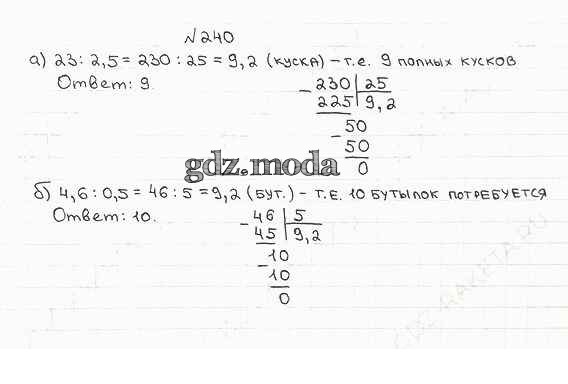 №240
а) 23 : 2,5 = 230 : 25 = 9,2 (куска) – т.е. 9 полных кусков
Ответ: 9.
230 | 25
– 225 | 9,2
50
– 50
0
gdz.moda
б) 4,6 : 0,5 = 46 : 5 = 9,2 (бут.) – т.е. 10 бутылок потребуется
Ответ: 10.
46 | 5
– 45 | 9,2
10
– 10
0